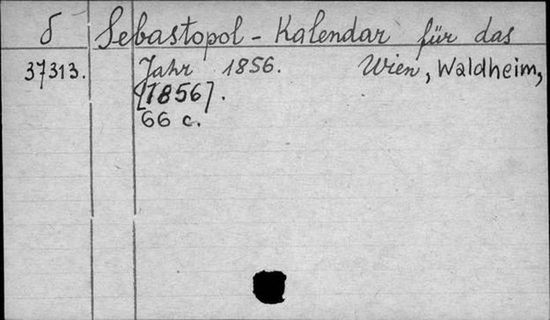 δ Sebastopol - Kalendar für das
37313. Jahr 1856. Wien, Waldheim,
[1856].
66 c.